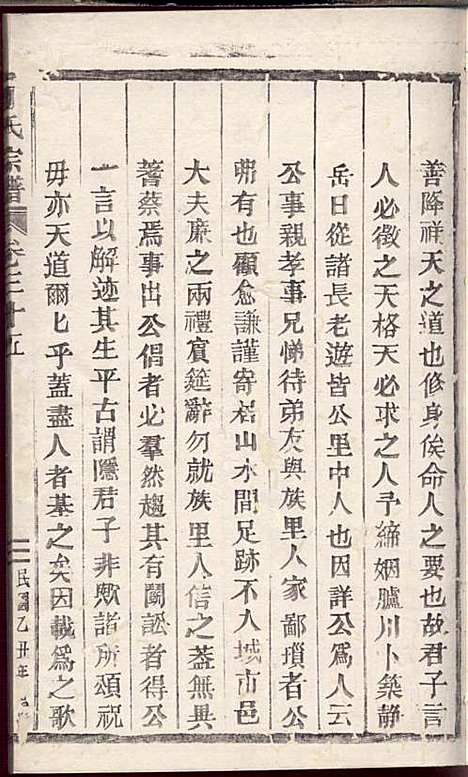 善降祥天之道也修身俟命人之要也故君子言
人必徵之天格天必求之人予締姻臚川卜築靜
岳日從諸長老遊皆公里中人也因詳公為人云
公事親孝事兄悌待弟友與族里人家鄙瑣者公
弗有也顧愈謙謹寄居山水間足跡不入城市邑
大夫廉之兩禮賓筵辭勿就族里人信之葢無異
蓍蔡焉事出公倡者必羣然趨其有鬬訟者得公
一言以解迹其生平古謂隱君子非歟諸所頌祝
毋亦天道爾匕乎蓋盡人者基之矣因載為之歌
氏宗譜 卷之三十五 民國乙丑年